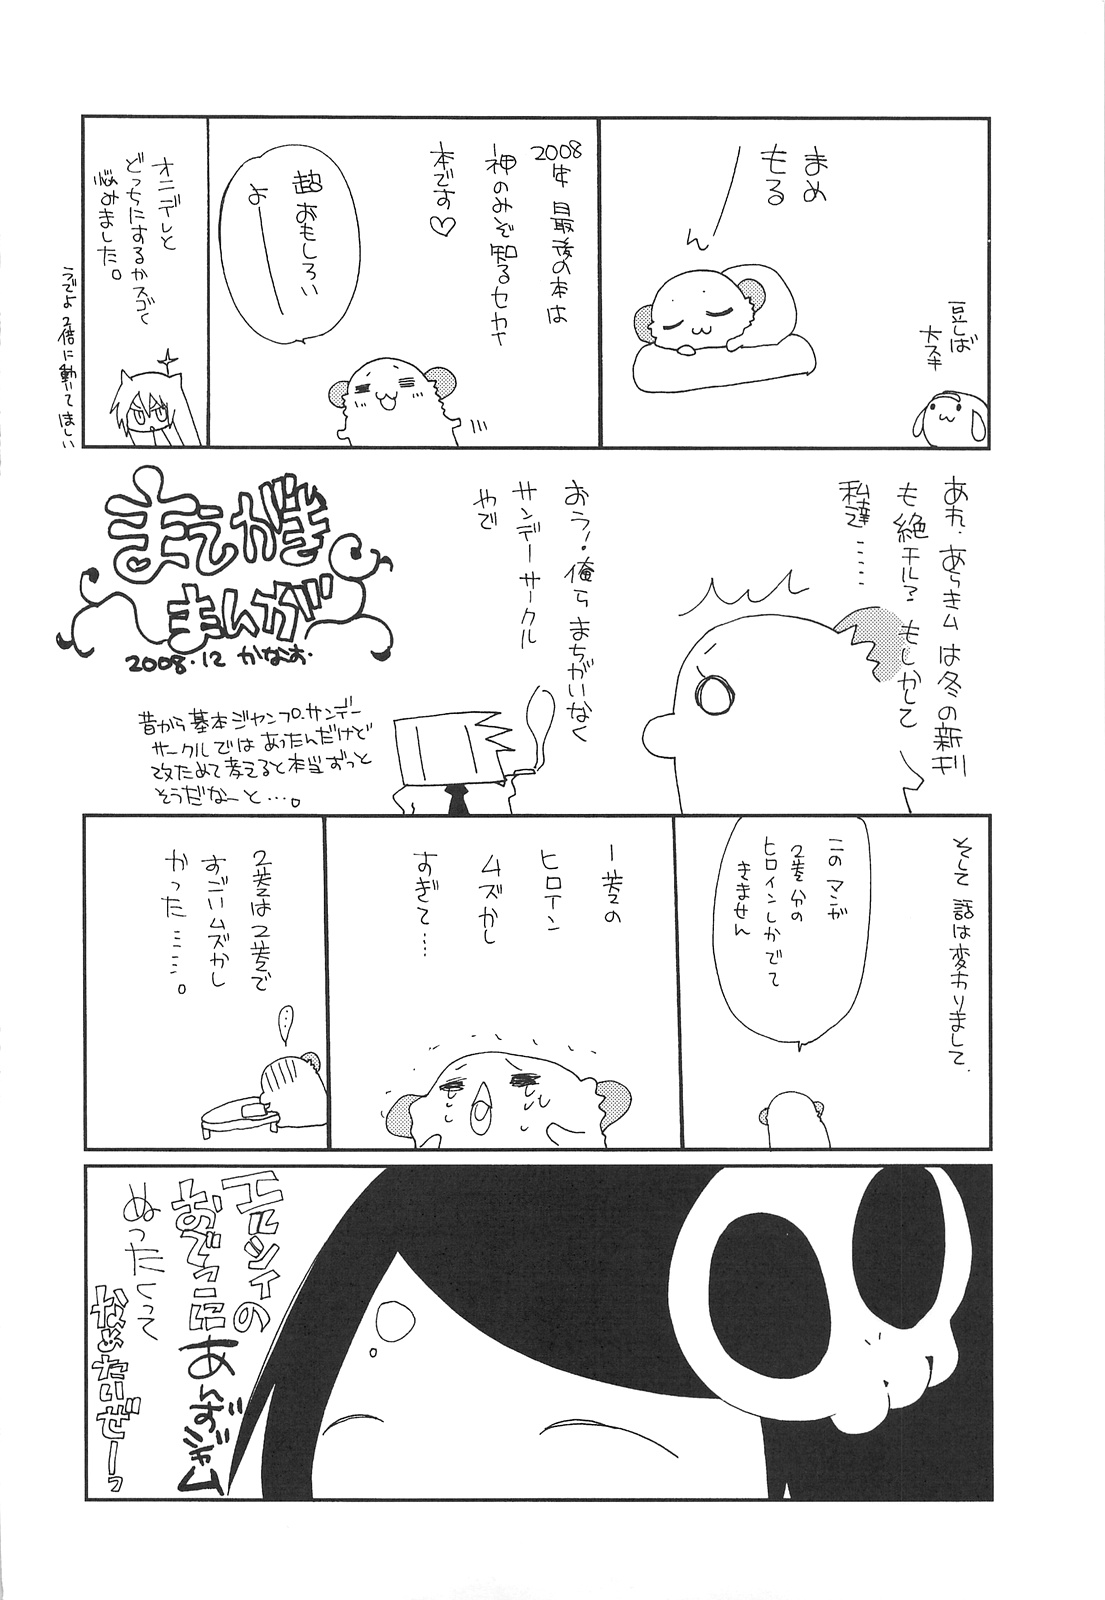 まめ
もる
ん
豆しば
大スキ
2008年 最後の本は
神のみぞ知るセカイ
本です♡
超おもしろい
よー
オニデレと
どっちにするかスゴく
悩みました。
うでよ2倍に動いてほしい
あれ、あらきムは冬の新刊
も絶チル? もしかして
私達……
おう!俺らまちがいなく
サンデーサークル
やで
まえがき
まんが
2008.12 かなお.
昔から基本ジャンプ、サンデー
サークルではあったんだけど
改ためて考えると本当ずっと
そうだなーと…。
そして話は変わりまして
このマンガ
2巻分の
ヒロインしかでて
きません
1巻の
ヒロイン
ムズかし
すぎて……
2巻は2巻で
すごいムズかし
かった……。
エルシィの
おでこに
あんずジャム
ぬったくって
なめたいぜーっ